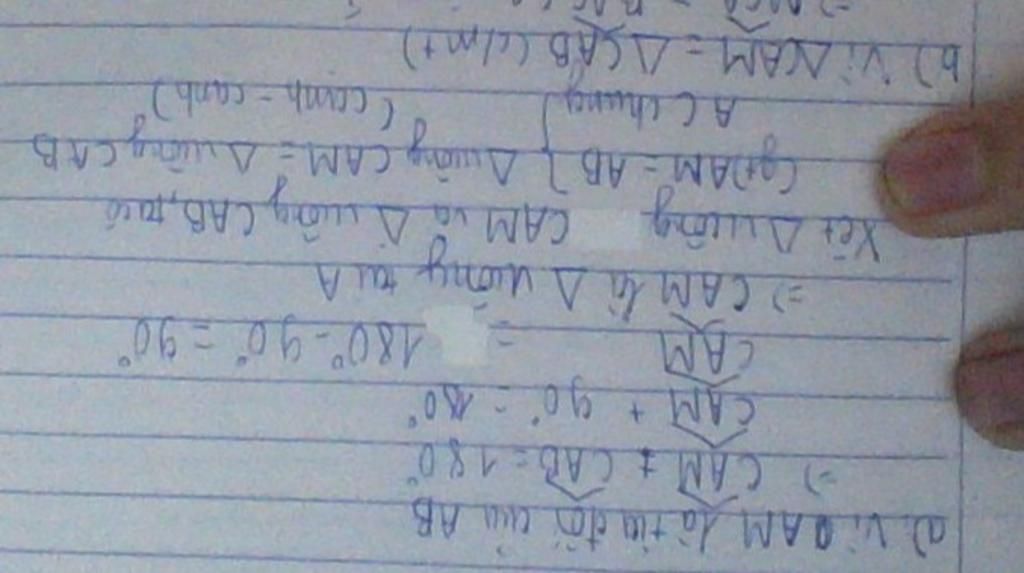 a) Vì AM là tia đối của AB
=> CAM + CAB = 180°
CAM + 90° = 180°
CAM = 180° - 90° = 90°
=> CAM là Δ vuông tại A
Xét Δ vuông CAM và Δ vuông CAB, ta có
(gt) AM = AB } Δ vuông CAM = Δ vuông CAB
AC chung } (cạnh - cạnh)
b) Vì ΔCAM = ΔCAB (c/m t)